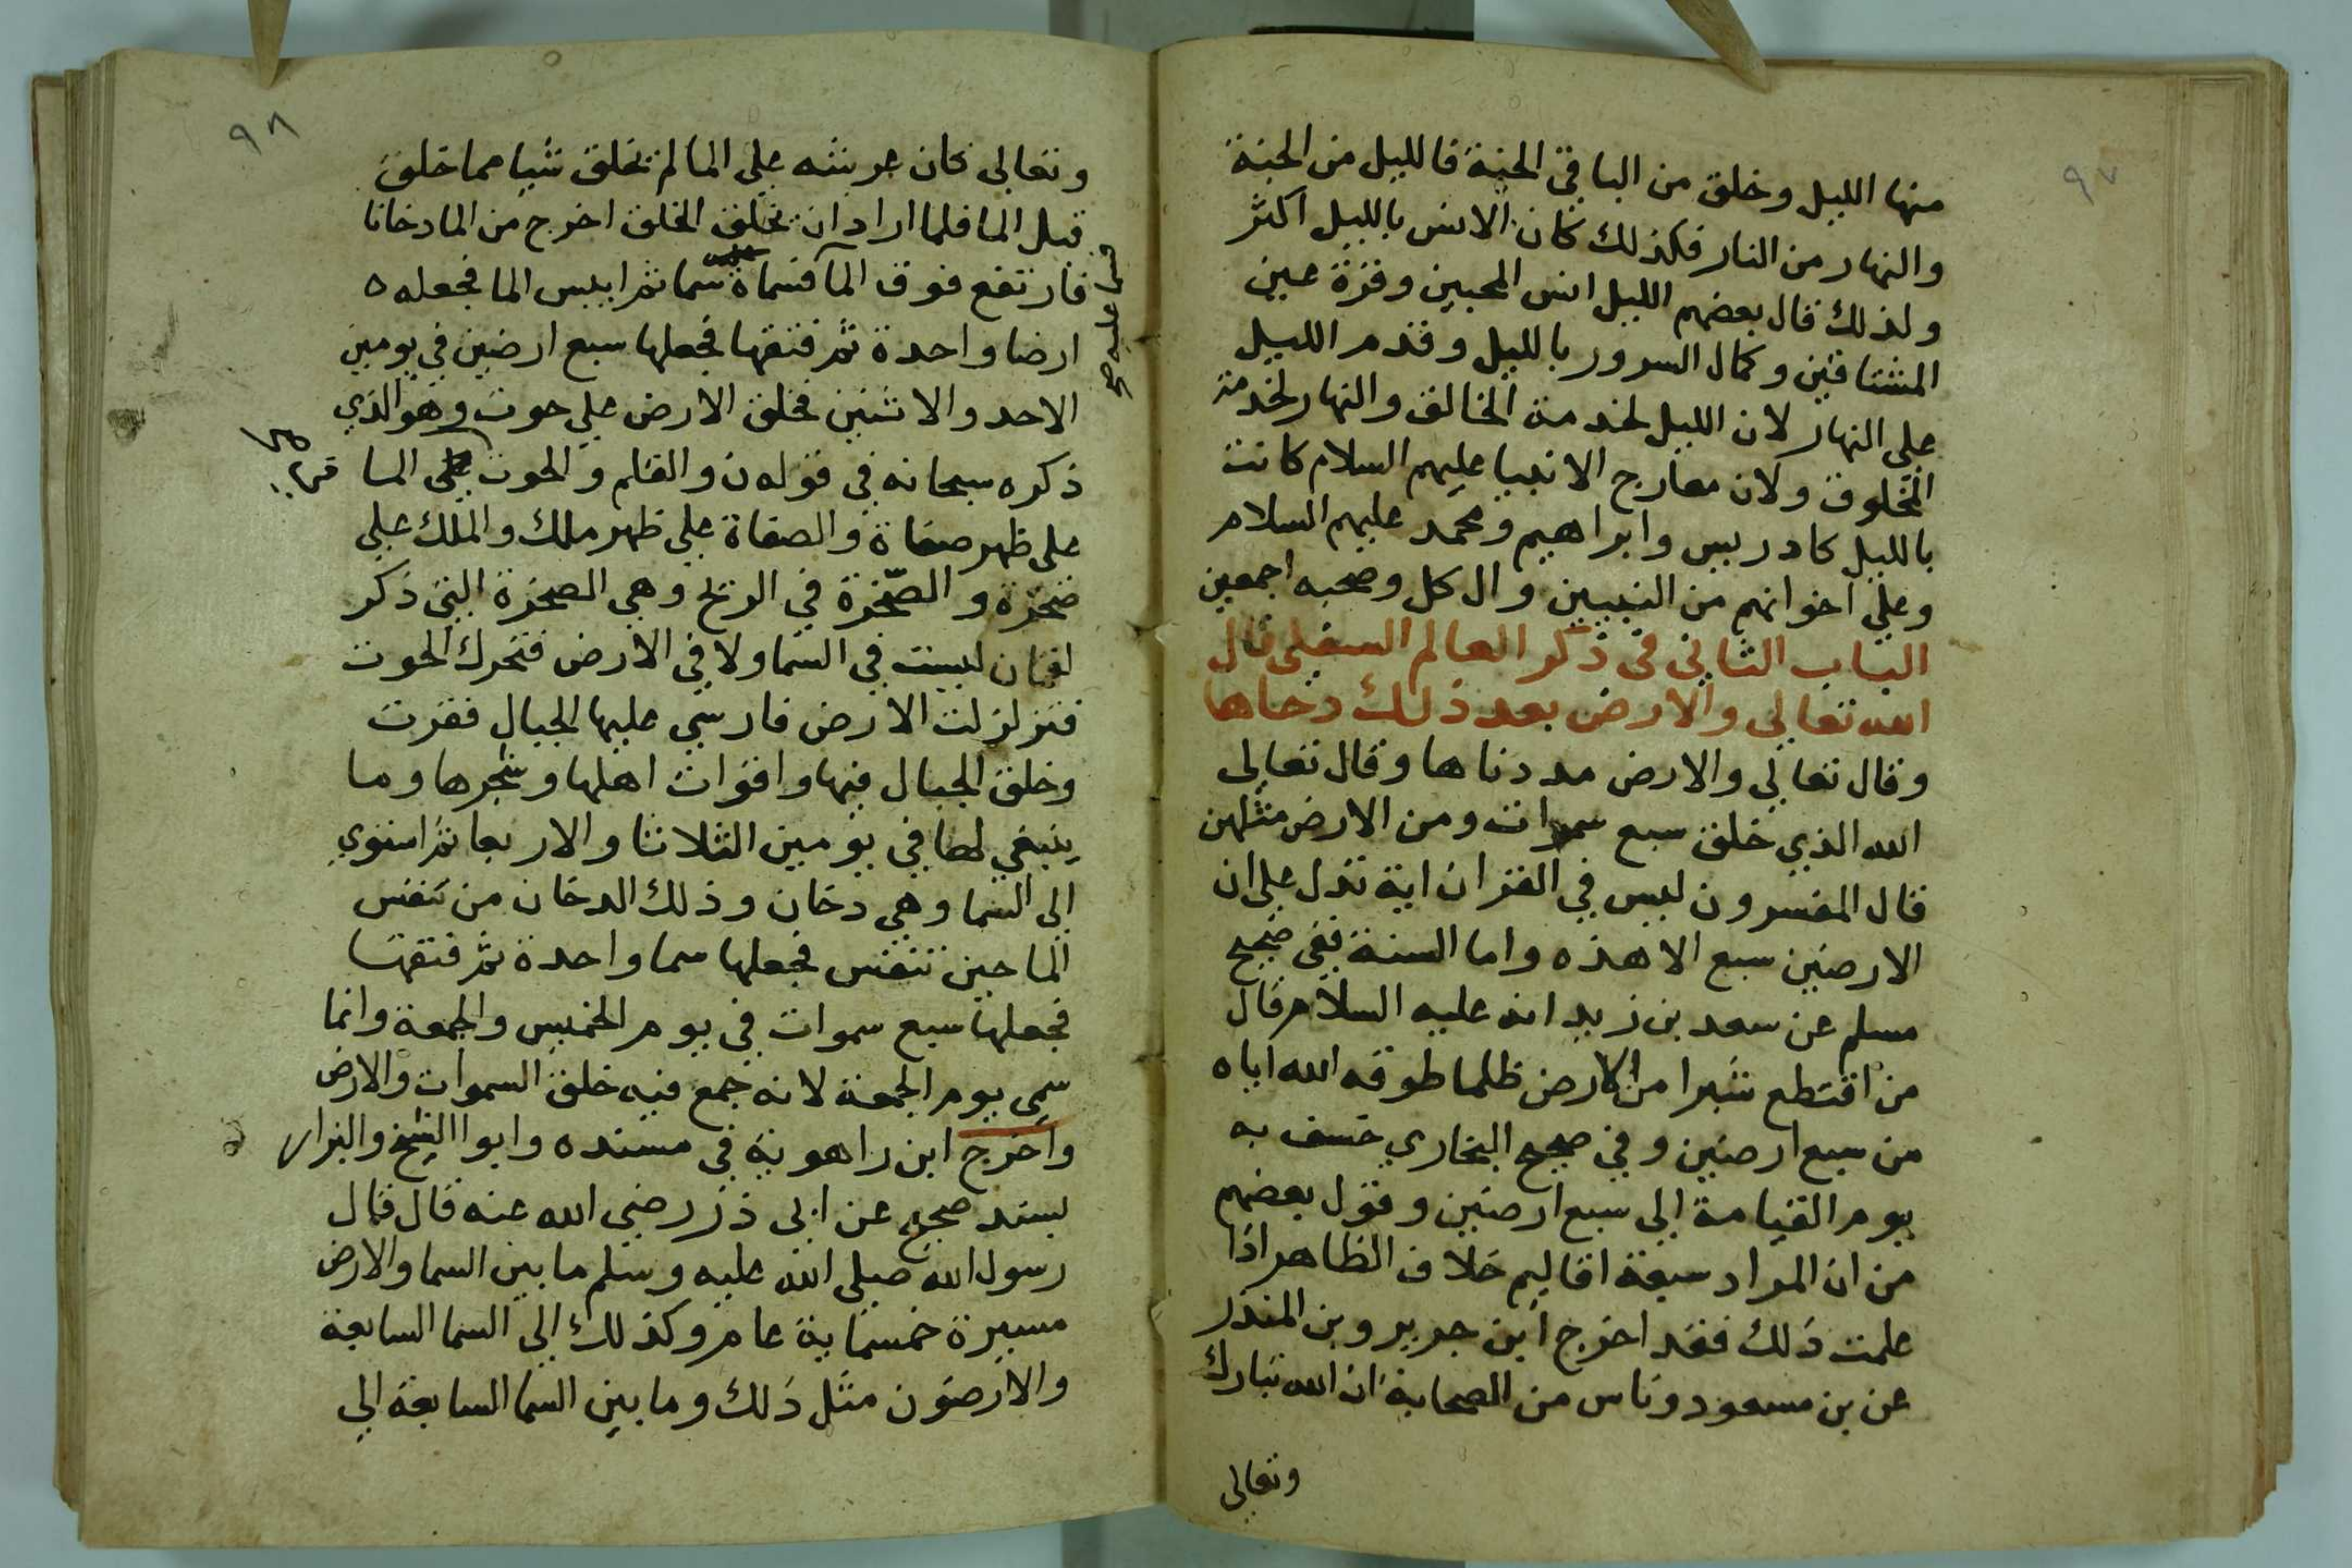 ٩٧
منها الليل وخلق من الباقي الجنة فالليل من الجنة
والنهار من النار فكذلك كان الانس بالليل اكثر
ولذلك قال بعضهم الليل انس المحبين وقرة عين
المشتاقين وكمال السرور بالليل وقدم الليل
على النهار لان الليل لخدمة الخالق والنهار لخدمة
المخلوق ولان معارج الانبيا عليهم السلام كانت
بالليل كادريس وابراهيم ومحمد عليهم السلام
وعلي اخوانهم من النبيين وال كل وصحبه اجمعين
الباب الثاني في ذكر العالم السفلي قال
الله تعالى والارض بعد ذلك دحاها
وقال تعالي والارض مددناها وقال تعالي
الله الذي خلق سبع سموات ومن الارض مثلهن
قال المفسرون ليس في القران اية تدل على ان
الارضين سبع الا هذه واما السنة ففي صحيح
مسلم عن سعد بن زيد انه عليه السلام قال
من اقتطع شبرا من الارض ظلما طوقه الله اياه
من سبع ارضين وفي صحيح البخاري خسف به
يوم القيامة الي سبع ارضين وقول بعضهم
من ان المراد سبعة اقاليم خلاف الظاهر اذا
علمت ذلك فقد اخرج ابن جرير وبن المنذر
عن بن مسعود وناس من الصحابة ان الله تبارك
وتعالى
٩٨
وتعالى كان عرشه علي الما لم يخلق شيا مما خلق
قبل الما فلما اراد ان يخلق الخلق اخرج من الما دخانا
فارتفع فوق المآ فسماه سما ثم ايبس الما فجعله ه
ارضا واحدة ثم فتقها فجعلها سبع ارضين في يومين
الاحد والاثنين فخلق الارض علي حوت وهو الذي
ذكره سبحانه في قوله ن والقلم والحوت في الما
على ظهر صفاة والصفاة علي ظهر ملك والملك علي
صخرة والصخرة في الريح وهي الصخرة التي ذكر
لقمان ليست في السما ولا في الارض فتحرك الحوت
فتزلزلت الارض فارسي عليها الجبال فقرت
وخلق الجبال فيها واقوات اهلها وشجرها وما
ينبغي لها في يومين الثلاثا والاربعا ثم استوي
الي السما وهي دخان وذلك الدخان من تنفس
الما حين تنفس فجعلها سما واحدة ثم فتقها
فجعلها سبع سموات في يوم الخميس والجمعة وانما
سمي يوم الجمعة لانه جمع فيه خلق السموات والارض
واخرج ابن راهوية في مسنده وابوا الشيخ والبزار
بسند صحيح عن ابي ذر رضي الله عنه قال قال
رسول الله صلى الله عليه وسلم ما بين السما والارض
مسيرة خمسماية عام وكذلك الي السما السابعة
والارضون مثل ذلك وما بين السما السابعة الي